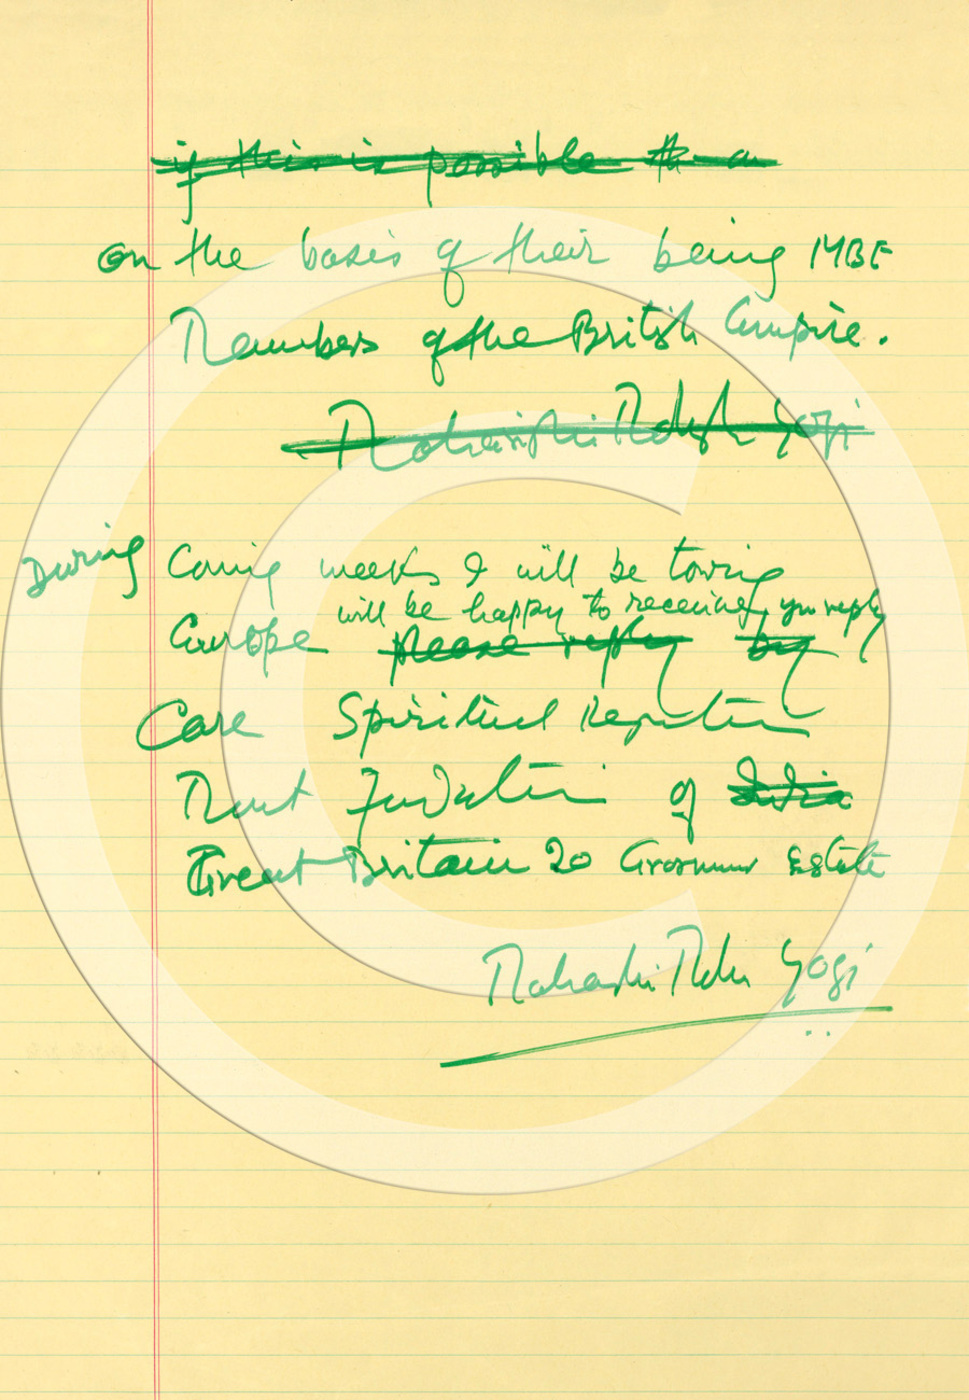 if this is possible th a
on the basis of their being MBE
Members of the British Empire.
Maharishi Mahesh Yogi
During Coming weeks I will be toring
will be happy to receiving your reply
Europe please reply by
Care Spiritual
Foundation of India
Great Britain 20 Grosvenor Estate
Maharishi Mahesh Yogi